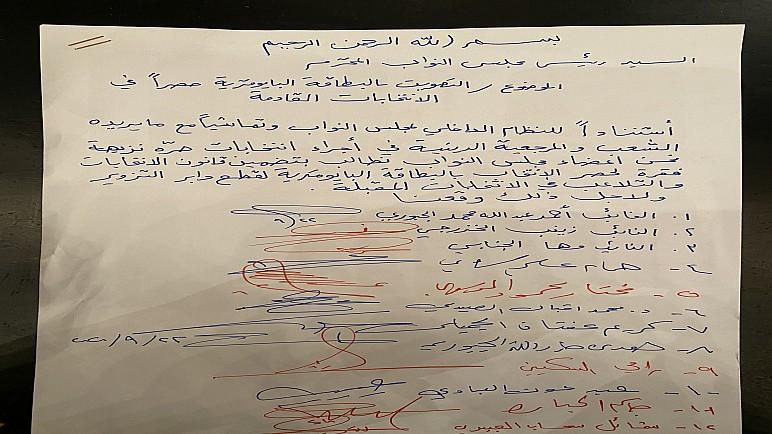 بسم الله الرحمن الرحيم
السيد رئيس مجلس النواب المحترم
الموضوع / التصويت بالبطاقة البايومترية حصراً في
الانتخابات القادمة
أستناداً للنظام الداخلي لمجلس النواب وتماشياً مع مايريده
الشعب والمرجعية الدينية في أجراء انتخابات حرة نزيهة
نحن اعضاء مجلس النواب نطالب بتضمين قانون الانتخابات
فقرة لحصر الانتخاب بالبطاقة البايومترية لقطع دابر التزوير
والتلاعب في الانتخابات المقبلة.
ولاجل ذلك وقعنا
١. النائب أحمد عبدالله محمد الجبوري ٩/٢٢
٢. النائب زينب الخزرجي
٣. النائب مها الجنابي
٤-
٥- مختار محمود الموسوي
٦- د. محمد اقبال الصيدلي
٧- كريم
٨- الجبوري ٩/٢٢
٩- رامي السكيني
١٠- العبادي
١١- جاسم الجبارة
١٢-